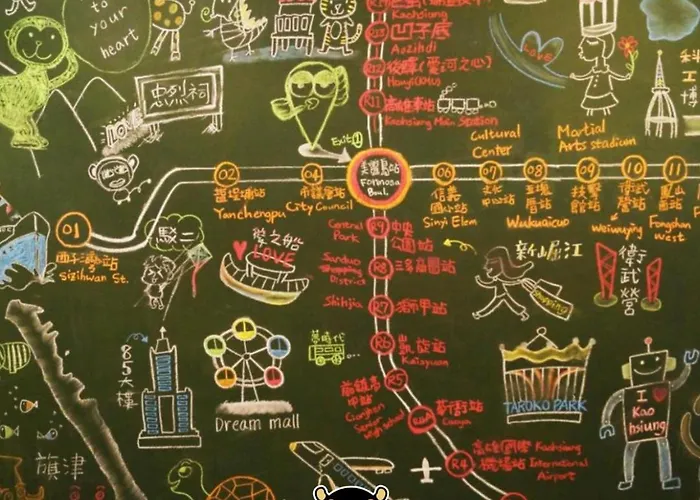 to
your
heart
忠烈祠
LOVE
Kaohsiung
R13
凹子底
Aozihdi
R12
後驛(愛河之心)
R11
高雄車站
Kaohsiung Main Station
Exit 1
美麗島站
Formosa
Boul.
01
西子灣站
Sizihwan St.
02
鹽埕埔站
Yanchengpu
04
市議會站
City Council
Cultural
Center
Martial
Arts stadium
Love
科
工
博
06
信義
國小站
Sinyi Elem
07
文化
中心站
08
五塊
厝站
Wukuaicuo
09
技擊
館站
10
衛武
營站
Weiwuying
11
鳳山
西站
Fongshan
West
駁二
愛之船
LOVE
R9
Central
Park
中央
公園站
R8
Sanduo
Shopping
District
三多商圈站
R7
Shihjia
獅甲站
R6
凱旋站
Kaisyuan
R5
前鎮高
中站
Cianjhen
Senior
High School
R4A
草衙站
Caoya
R4
高雄國際
機場站
Kaohsiung
International
Airport
新崛江
Shopping
衛
武
營
85大樓
夢時代
Dream mall
TAROKO PARK
I
Kao
hsiung
旗津